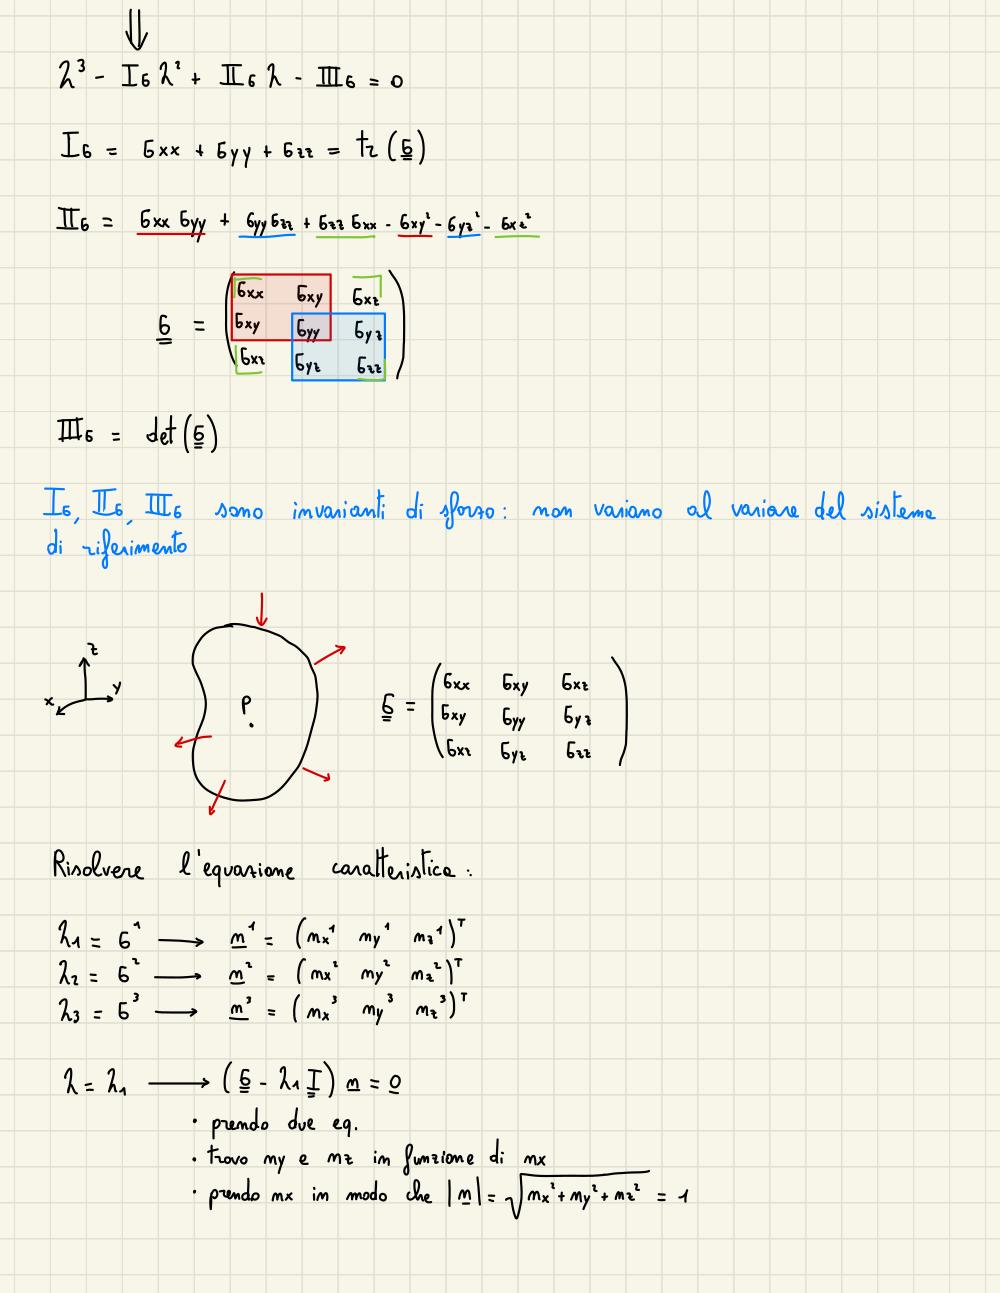 ⇓
λ³ - I₆ λ² + II₆ λ - III₆ = 0
I₆ = σxx + σyy + σzz = tr (σ)
II₆ = σxx σyy + σyy σzz + σzz σxx - σxy² - σyz² - σxz²
σxx σxy σxz
σ = σxy σyy σyz
σxz σyz σzz
III₆ = det (σ)
I₆, II₆, III₆ sono invarianti di sforzo: non variano al variare del sistema
di riferimento
z
x y
P
σxx σxy σxz
σ = σxy σyy σyz
σxz σyz σzz
Risolvere l'equazione caratteristica:
λ1 = σ¹ → n¹ = (nx¹ ny¹ nz¹)ᵀ
λ2 = σ² → n² = (nx² ny² nz²)ᵀ
λ3 = σ³ → n³ = (nx³ ny³ nz³)ᵀ
λ = λ1 → (σ - λ1 I) n = 0
· prendo due eq.
· trovo ny e nz in funzione di nx
· prendo nx in modo che |n| = √(nx² + ny² + nz²) = 1